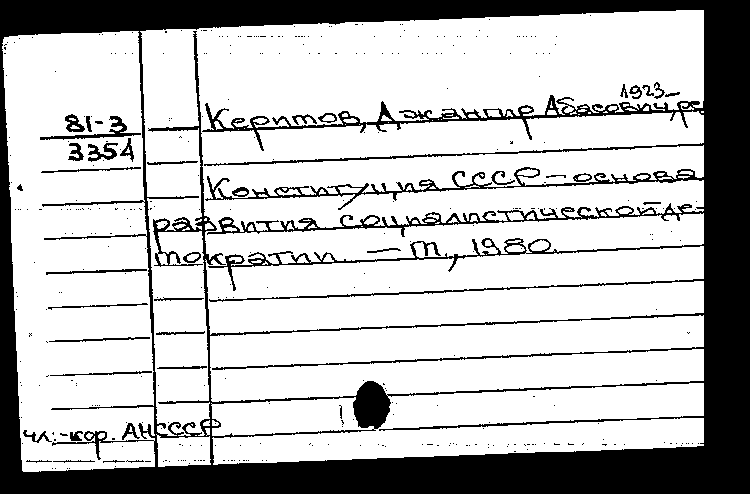 1923-
81-3 Керимов, Джангир Абасович, ре
3354
Конституция СССР - основа
развития социалистической де-
мократии. - М., 1980.
чл.-кор. АН СССР